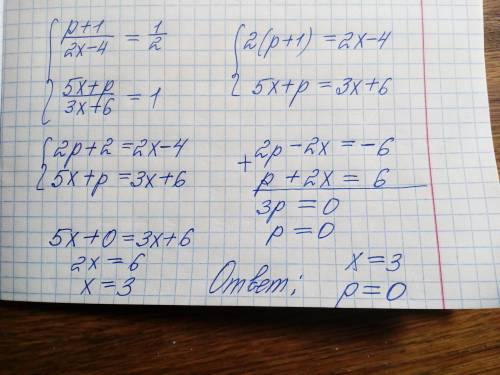 { (p+1)/(2x-4) = 1/2
(5x+p)/(3x+6) = 1
{ 2(p+1) = 2x-4
5x+p = 3x+6
{ 2p+2 = 2x-4
5x+p = 3x+6
+ 2p-2x = -6
p+2x = 6
3p = 0
p = 0
5x+0 = 3x+6
2x = 6
x = 3
Ответ: x = 3
p = 0